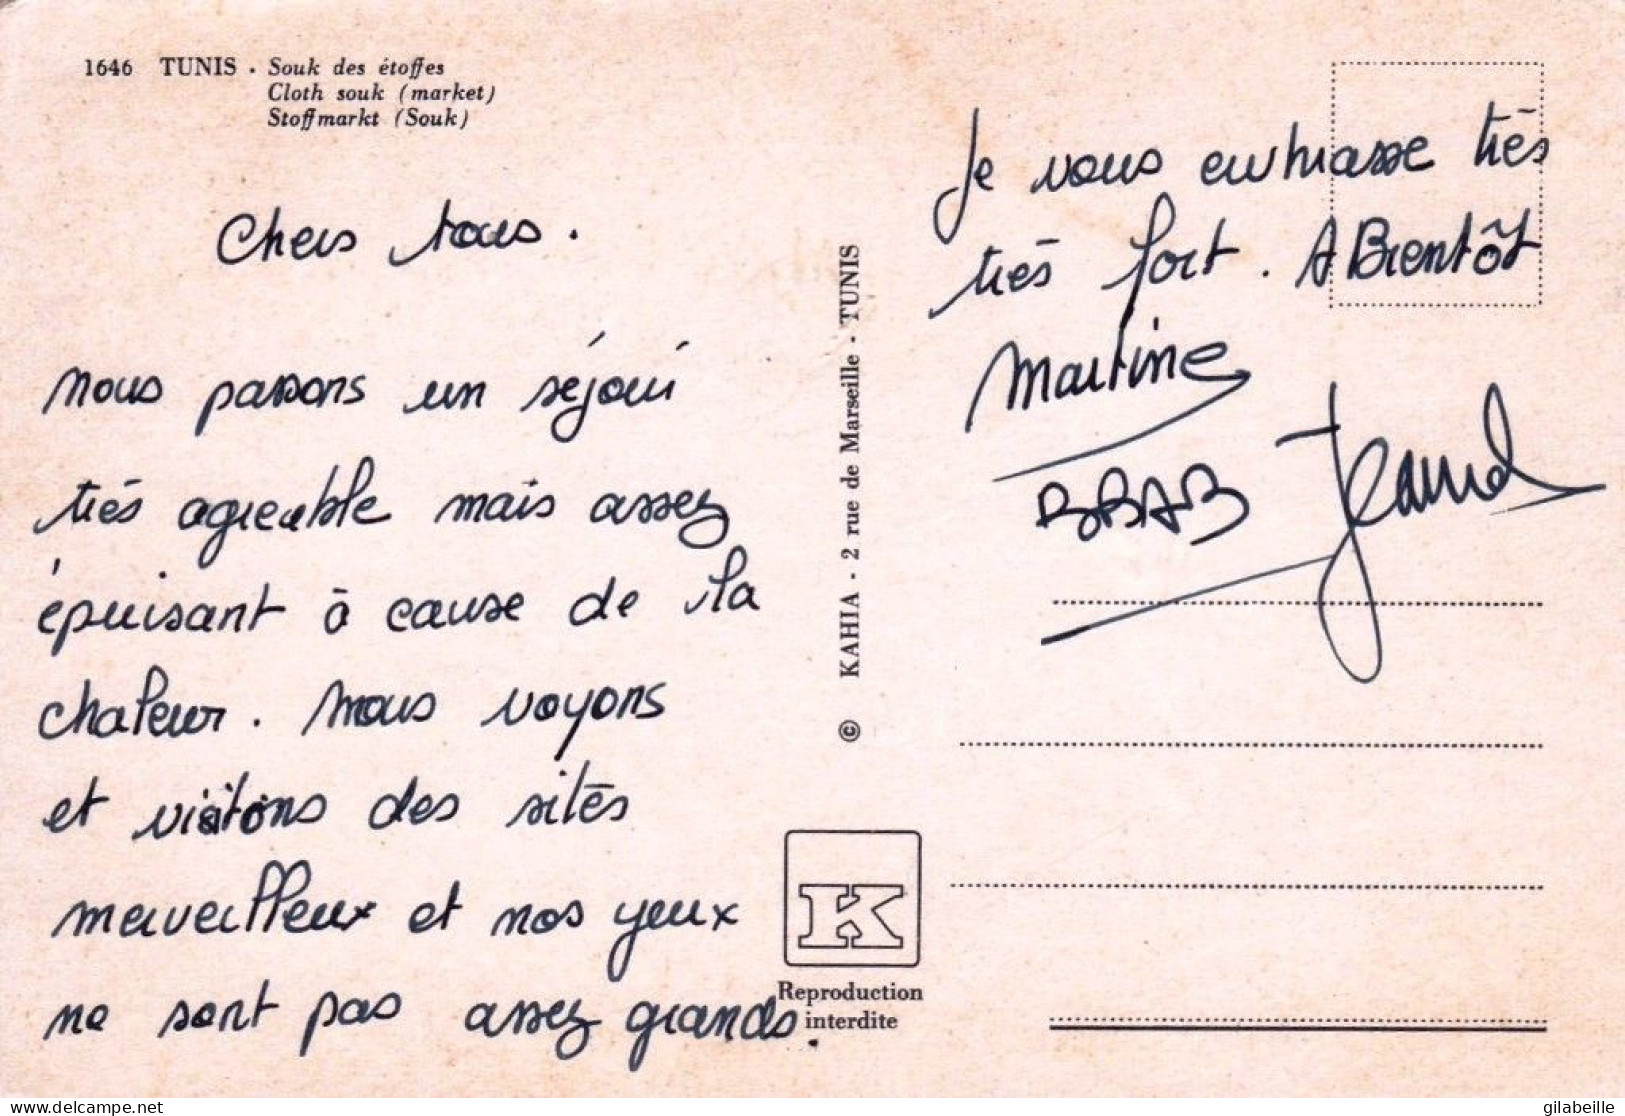 1646 TUNIS . Souk des étoffes
Cloth souk (market)
Stoffmarkt (Souk)
Chers tous.
nous passons un séjour
très agréable mais assez
épuisant à cause de la
chaleur. nous voyons
et visitons des sités
merveilleux et nos yeux
ne sont pas assez grands.
© KAHIA - 2 rue de Marseille - TUNIS
K
Reproduction
interdite
Je vous embrasse très
très fort. A Bientôt
Martine
delcampe.net
gilabeille